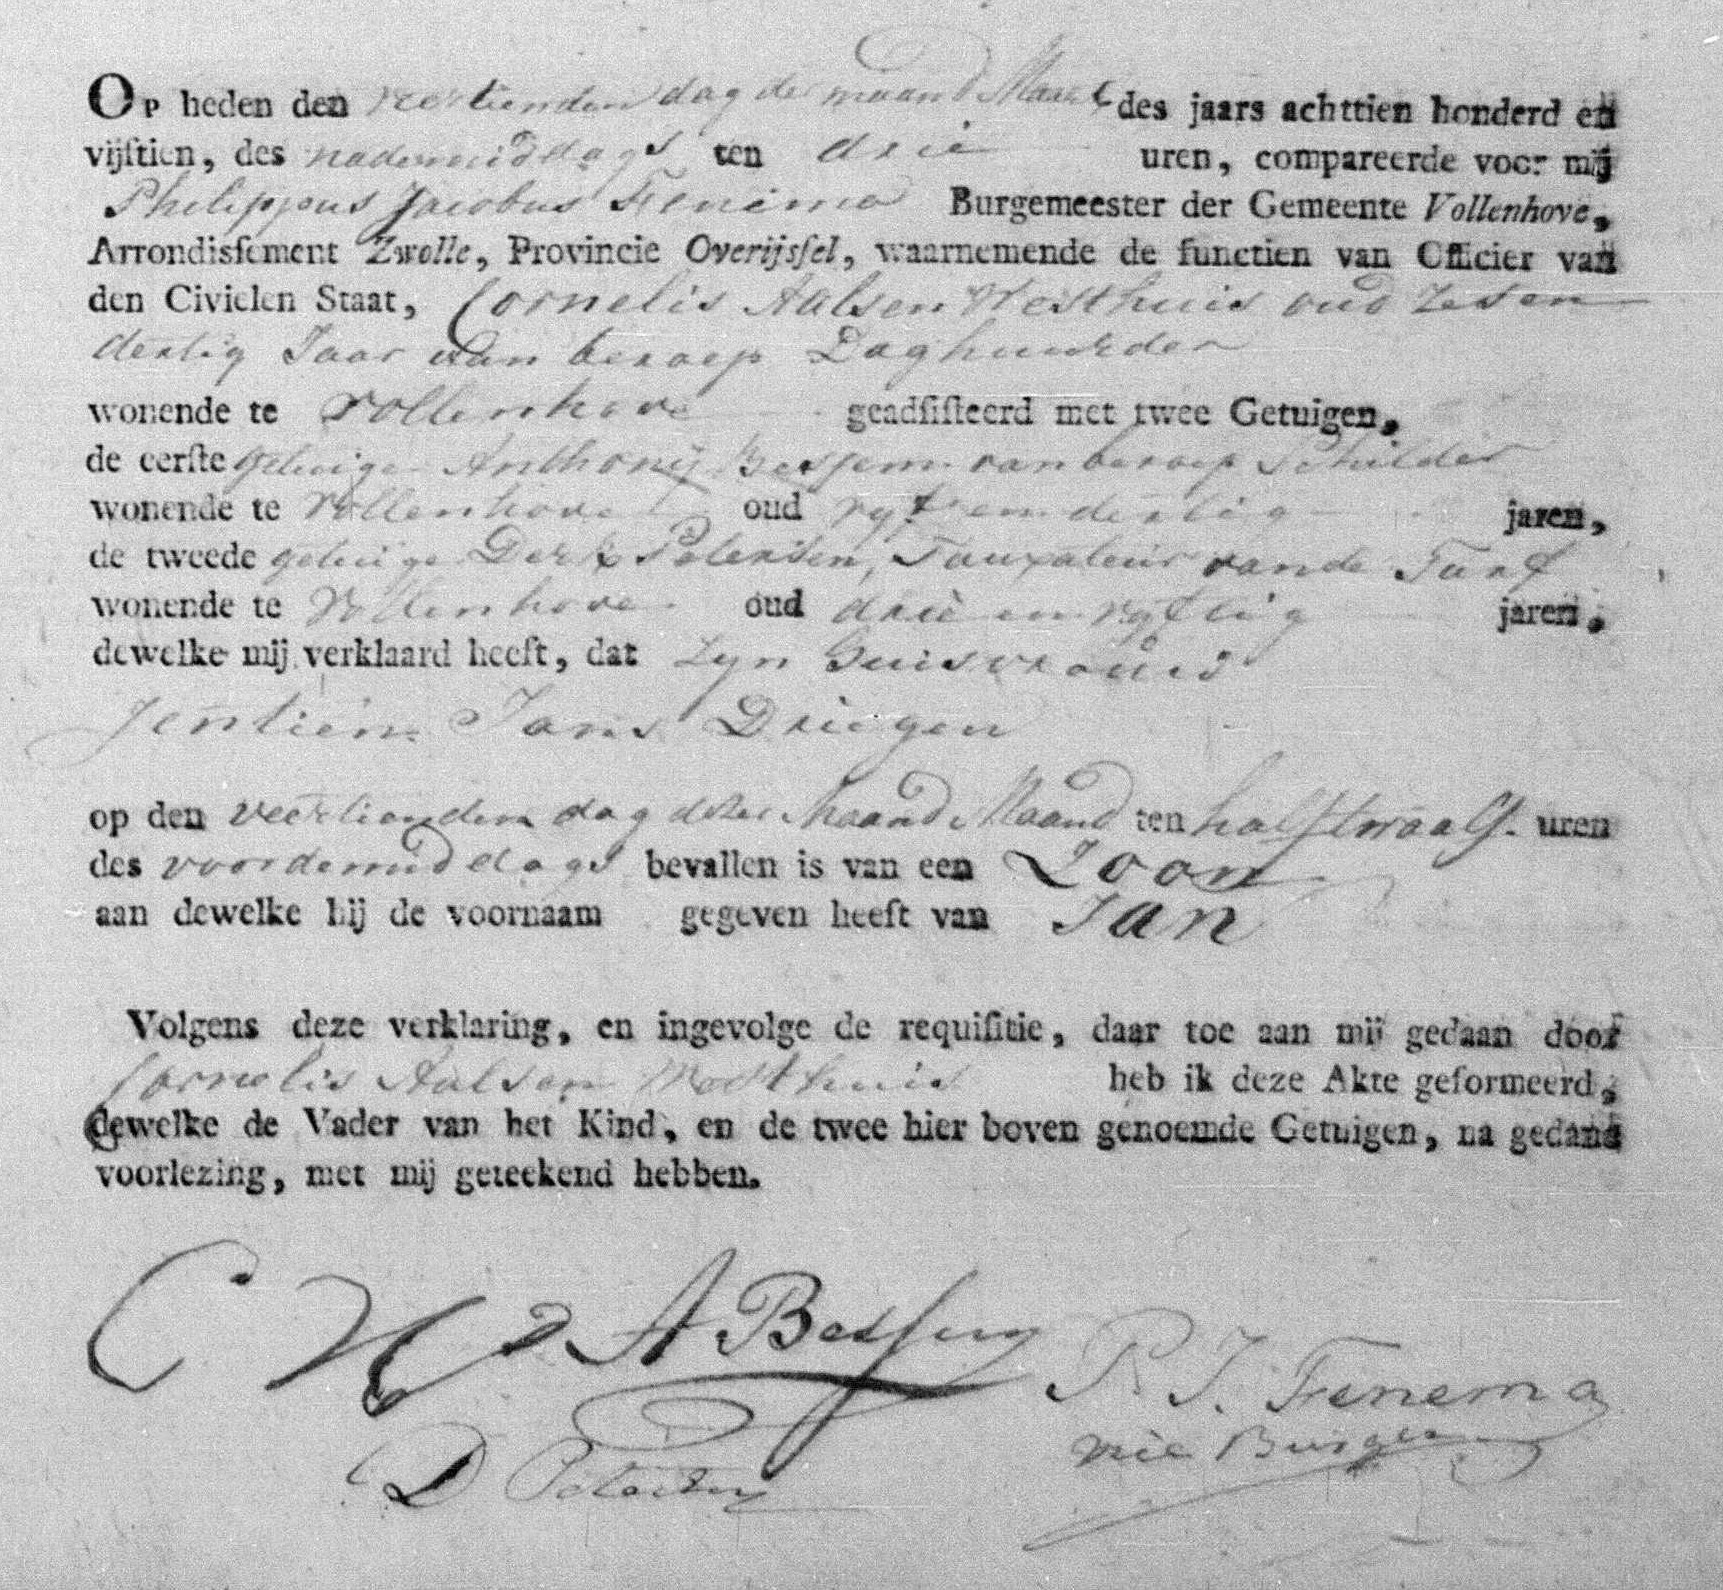 Op heden den veertienden dag der maand Maart des jaars achttien honderd en
vijftien, des nademiddags ten drie uren, compareerde voor mij
Philippus Jacobus Fenema Burgemeester der Gemeente Vollenhove,
Arrondissement Zwolle, Provincie Overijssel, waarnemende de functien van Officier van
den Civielen Staat, Cornelis Aalsen Westhuis oud Zes en
dertig Jaar van beroep Daghuurder
wonende te Vollenhove geadsisteerd met twee Getuigen,
de eerste getuige Anthonij van beroep Schilder
wonende te Vollenhove oud vyf en dertig jaren,
de tweede getuige Derk Petersen, Tauxateur van de Turf
wonende te Vollenhove oud drie en vyftig jaren,
dewelke mij verklaard heeft, dat Zyn Huisvrouw
Jentien Jans Driegen
op den veertienden dag dezer Maand Maand ten half twaalf uren
des voordemiddags bevallen is van een Zoon
aan dewelke hij de voornaam gegeven heeft van Jan
Volgens deze verklaring, en ingevolge de requisitie, daar toe aan mij gedaan door
Cornelis Aalsen Westhuis heb ik deze Akte geformeerd,
dewelke de Vader van het Kind, en de twee hier boven genoemde Getuigen, na gedane
voorlezing, met mij geteekend hebben.
C W A
P J Fenema
D Petersen